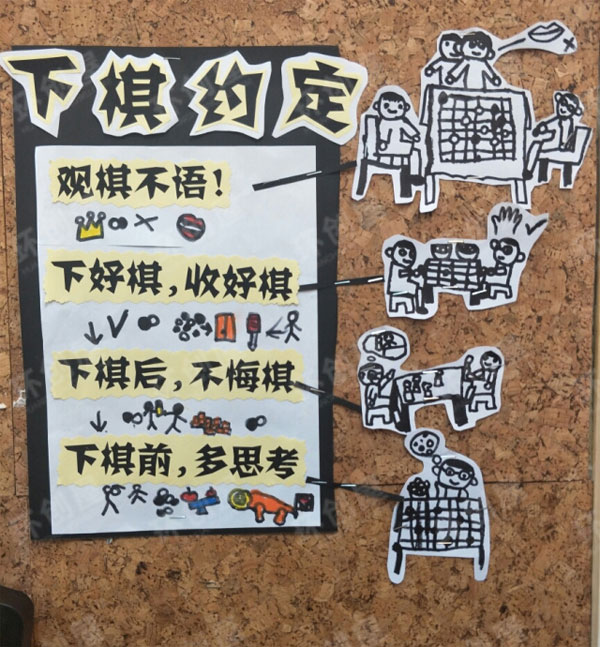 下棋约定
观棋不语！
下好棋，收好棋
下棋后，不悔棋
下棋前，多思考